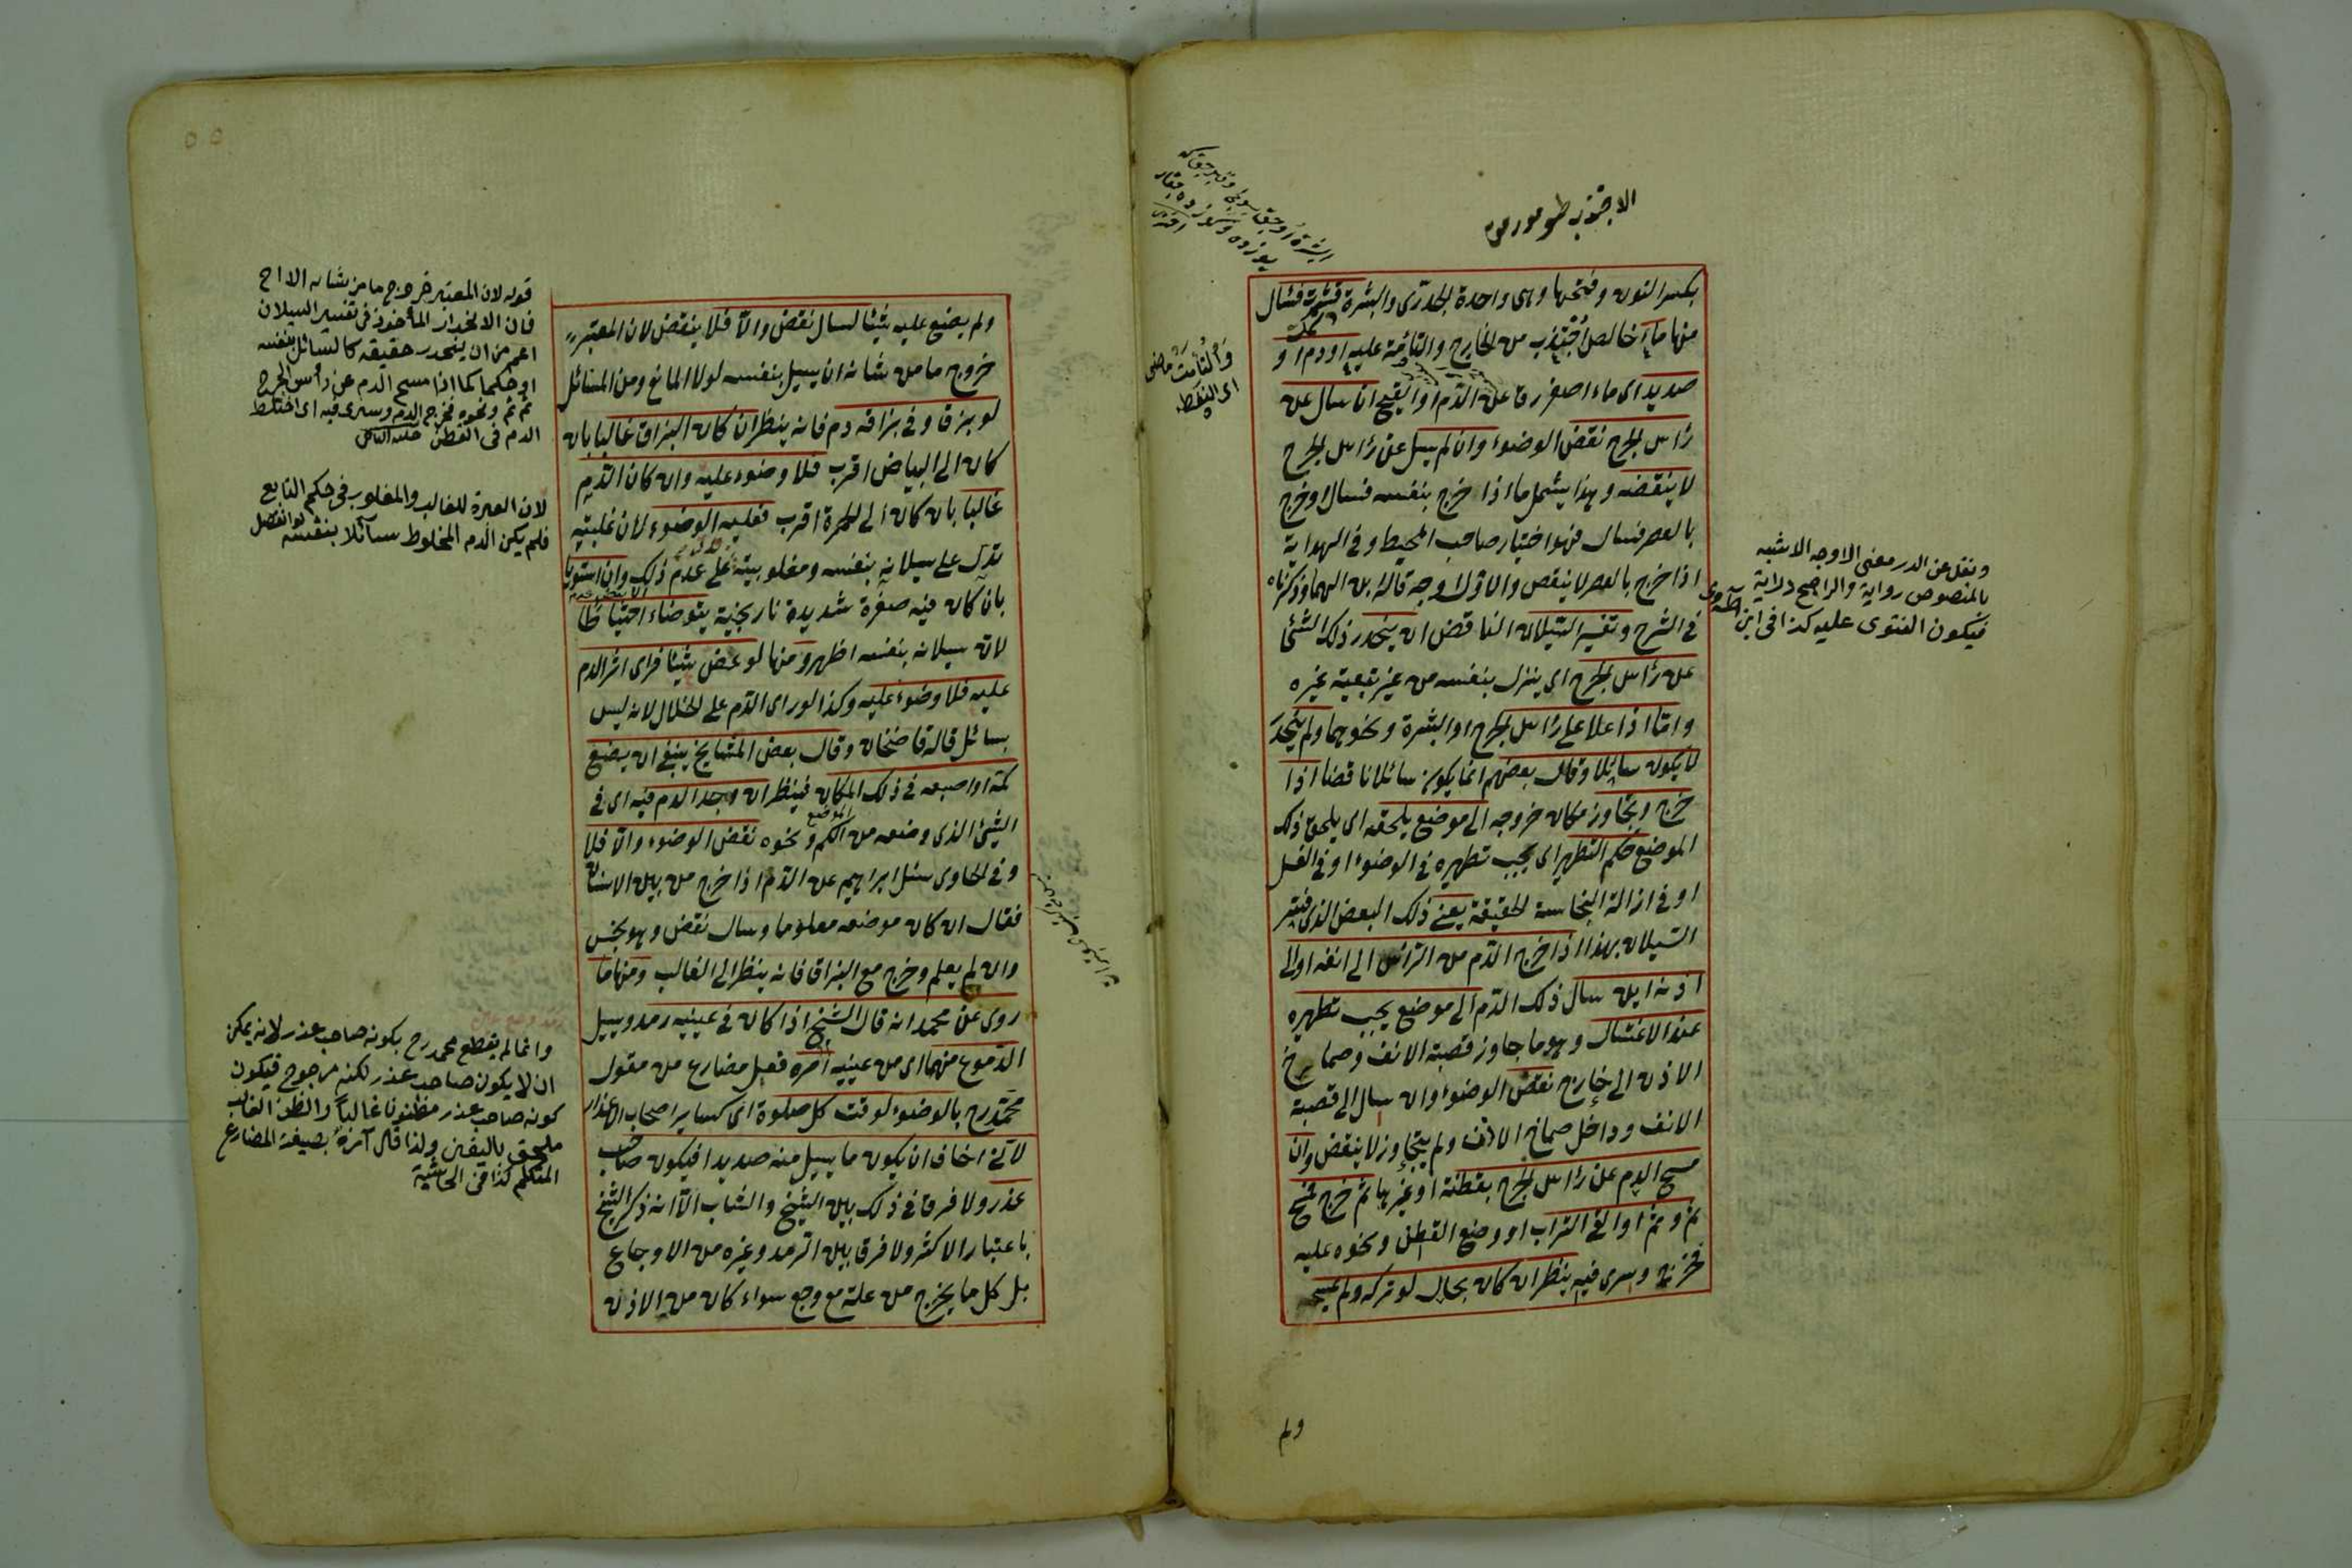 بكسر النون وفتحها وهى واحدة الجدرى والبثرة قشرت فسال
منها ماء خالص اجتذب من الخارج والتأمت عليه او دم او
صديد اى ماء اصفر رق عن الدم او القيح ان سال عن
رأس الجرح نقض الوضوء وان لم يسل عن رأس الجرح
لا ينقضه وهذا يشمل ما اذا خرج بنفسه فسال او خرج
بالعصر فسال فهو اختيار صاحب المحيط وفى الهداية
اذا خرج بالعصر لا ينقض والاول اوجه قاله ابن الهمام وذكرناه
فى الشرح وتفسير السيلان الناقض ان ينحدر ذلك الشئ
عن رأس الجرح اى ينزل بنفسه من غير تبعية غيره
واما اذا علا على رأس الجرح او البثرة ونحوهما ولم ينحدر
لا يكون سائلا وقال بعضهم انما يكون سائلا ناقضا اذا
خرج وتجاوز مكان خروجه الى موضع يلحقه اى يلحق ذلك
الموضع حكم التطهير اى يجب تطهيره فى الوضوء او فى الغسل
او فى ازالة النجاسة الحقيقة يعنى ذلك البعض الذى فسر
السيلان بهذا اذا خرج الدم من الرأس الى انفه او الى
اذنه ان سال ذلك الدم الى موضع يجب تطهيره
عند الاغتسال وهو ما جاوز قصبة الانف وصماخ
الاذن الى خارج نقض الوضوء وان سال الى قصبة
الانف وداخل صماخ الاذن ولم يتجاوز لا ينقض وان
مسح الدم عن رأس الجرح بقطنة او غيرها ثم خرج فمسح
ثم وثم او القى التراب او وضع القطن ونحوه عليه
فخرج وسرى فيه ينظر ان كان بحال لو تركه ولم يمسحه
ولم
والتأمت ماضى
ونقل عن الدرر معنى الاوجه الاشبه
بالمنصوص رواية والراجح دراية
فيكون الفتوى عليه كذا فى ابن
ولم يضع عليه شيئا لسال نقض والا فلا ينقض لان المعتبر
خروج ما من شأنه ان يسيل بنفسه لولا المانع ومن المسائل
لو بزق وفى بزاقه دم فانه ينظر ان كان البزاق غالبا بان
كان الى البياض اقرب فلا وضوء عليه وان كان الدم
غالبا بان كان الى الحمرة اقرب فعليه الوضوء لان غلبته
تدل على سيلانه بنفسه ومغلوبيته على عدم ذلك وان استويا
بان كان فيه صفرة شديدة نارنجية يتوضاء احتياطا
لان سيلانه بنفسه اظهر ومنها لو عض شيئا فرأى اثر الدم
عليه فلا وضوء عليه وكذا لو رأى الدم على الخلال لانه ليس
بسائل قاله قاضيخان وقال بعض المشايخ ينبغى ان يضع
كمه او اصبعه فى ذلك المكان فينظر ان وجد الدم فيه اى فى
الموضع
الشئ الذى وضعه من الكم ونحوه نقض الوضوء والا فلا
وفى الحاوى سئل ابراهيم عن الدم اذا خرج من بين الاسنان
فقال ان كان موضعه معلوما وسال نقض وهو نجس
وان لم يعلم وخرج مع البزاق فانه ينظر الى الغالب ومنها ما
روى عن محمد انه قال الشيخ اذا كان فى عينيه رمد ويسيل
الدموع منهما اى من عينيه آمره فعل مضارع من مقول
محمد رح بالوضوء لوقت كل صلوة اى كسائر اصحاب الاعذار
لانى اخاف ان يكون ما يسيل منه صديدا فيكون صاحب
عذر ولا فرق فى ذلك بين الشيخ والشاب الا انه ذكر الشيخ
باعتبار الاكثر ولا فرق بين الرمد وغيره من الاوجاع
بل كل ما يخرج من علة مع وجع سواء كان من الاذن
قوله لان المعتبر خروج ما من شانه الا اح
فان الانحدار المأخوذ فى تفسير السيلان
اعم من ان ينحدر حقيقة كالسائل بنفسه
او حكما كما اذا مسح الدم عن رأس الجرح
ثم ثم ونحوه فخرج الدم وسرى فيه اى اختلط
الدم فى القطن
لان العبرة للغالب والمغلوب فى حكم التابع
فلم يكن الدم المخلوط سآئلا بنفسه
وانما لم يقطع محمد رح بكونه صاحب عذر لانه يمكن
ان لا يكون صاحب عذر لكنه مرجوح فيكون
كونه صاحب عذر مظنونا غالبا والظن الغالب
ملحق باليقين ولذا قال آمره بصيغة المضارع
المتكلم كذا فى الحاشية